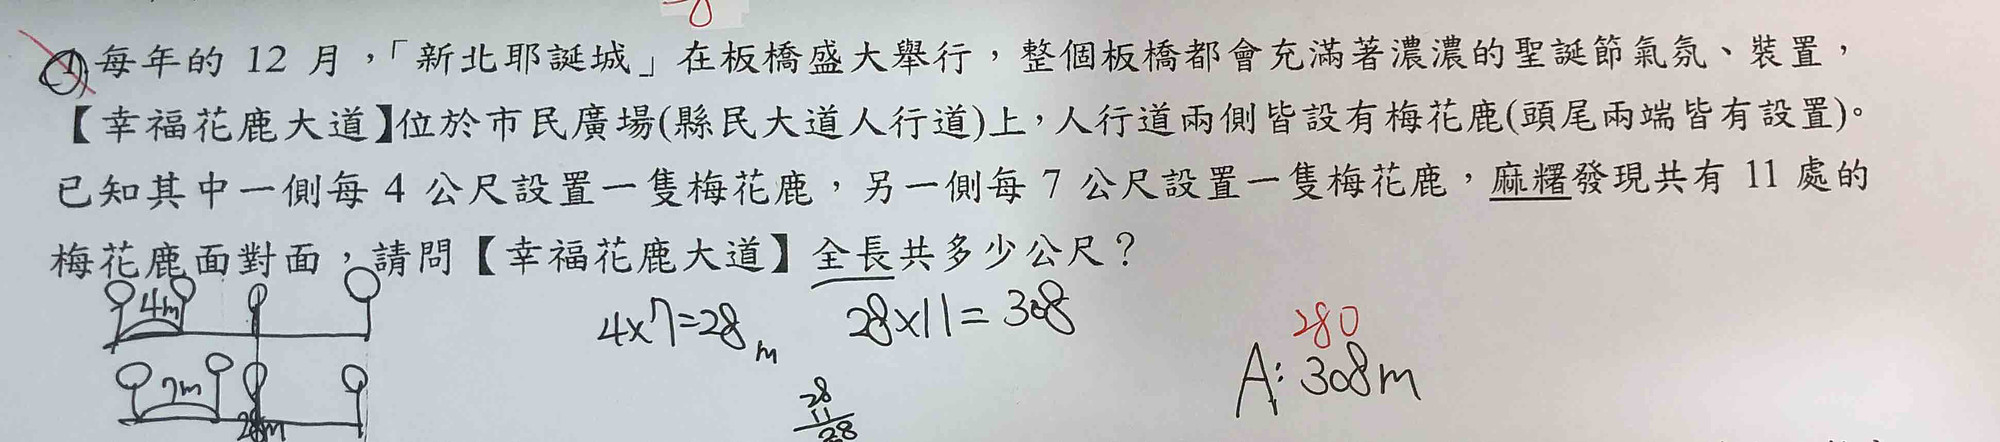 8
① 每年的 12 月,「新北耶誕城」在板橋盛大舉行,整個板橋都會充滿著濃濃的聖誕節氣氛、裝置,
【幸福花鹿大道】位於市民廣場(縣民大道人行道)上,人行道兩側皆設有梅花鹿(頭尾兩端皆有設置)。
已知其中一側每 4 公尺設置一隻梅花鹿,另一側每 7 公尺設置一隻梅花鹿,麻糬發現共有 11 處的
梅花鹿面對面,請問【幸福花鹿大道】全長共多少公尺?
4m
4×7=28m
28×11=308
280
A:308m
7m
28m
28
11
28